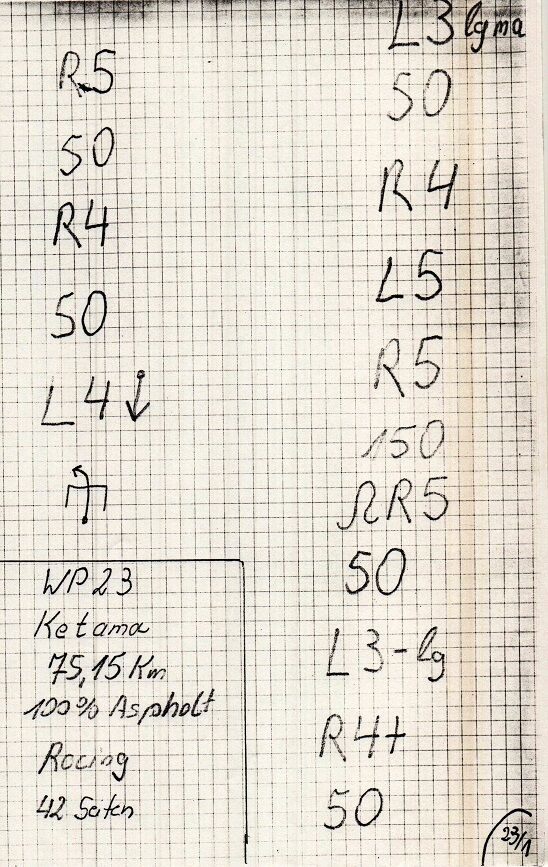 R5
50
R4
50
L4 ↓
WP 23
Ketama
75,15 Km
100% Asphalt
Racing
42 Seiten
L3 lg ma
50
R4
L5
R5
150
ΩR5
50
L3-lg
R4+
50
23/1